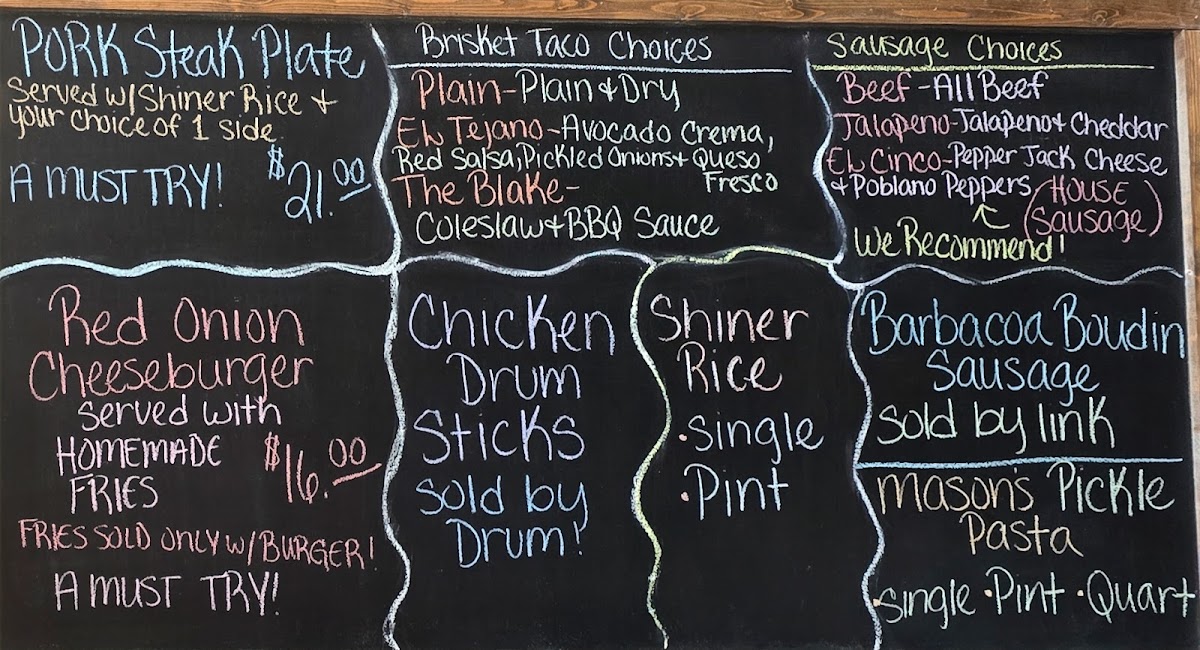 PORK Steak Plate
Served w/Shiner Rice +
your choice of 1 side
A MUST TRY! $21.00
Brisket Taco Choices
Plain-Plain & Dry
EL Tejano-Avocado Crema,
Red Salsa, Pickled Onions + Queso
Fresco
The Blake-
Coleslaw + BBQ Sauce
Sausage Choices
Beef-All Beef
Jalapeno-Jalapeno + Cheddar
EL Cinco-Pepper Jack Cheese
& Poblano Peppers
(HOUSE
Sausage)
We Recommend!
Red Onion
Cheeseburger
Served with
HOMEMADE
FRIES
$16.00
FRIES SOLD ONLY w/BURGER!
A MUST TRY!
Chicken
Drum
Sticks
sold by
Drum!
Shiner
Rice
•single
•Pint
Barbacoa Boudin
Sausage
sold by link
Mason's Pickle
Pasta
•single •Pint •Quart